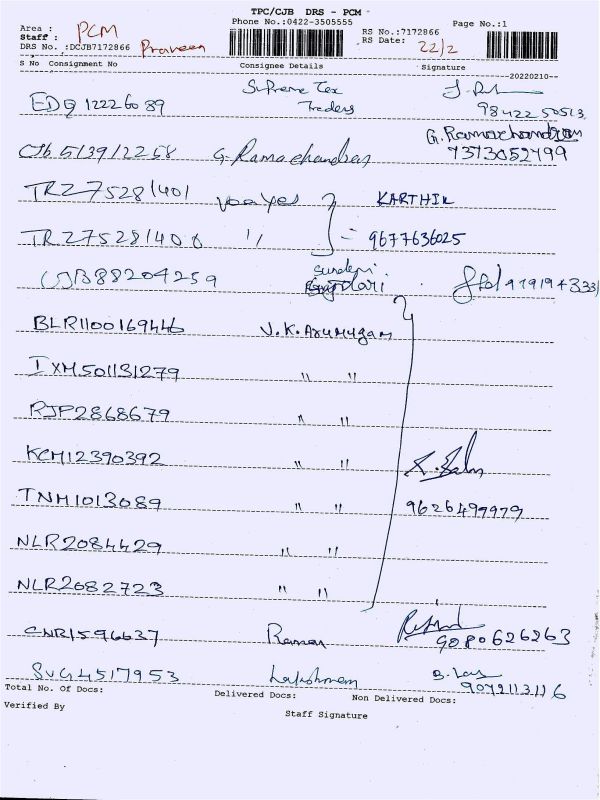 TPC/CJB DRS - PCM
Area : PCM Phone No.:0422-3505555 Page No.:1
Staff : Praveen RS No.:7172866
DRS No. :DCJB7172866 RS Date: 22/2
S No Consignment No Consignee Details Signature
20220210--
EDQ 12226089 Supreme Tex Traders 9842250513
CJb 5139/2258 G. Ramachandran G. Ramachandran 7373052499
TRZ 7528/401 KARTHIK
TRZ 7528/400 " = 9677636025
88204259
BLR1100169446 V.K. Arumugam
IXM501131279 " "
RJP2868679 " "
KCM12390392 " "
TNM1013089 " " 9626499979
NLR2084429 " "
NLR2082723 " "
CNR1596637 Raman 9080626263
SVG4517953 Lakshmam 9072113116
Total No. Of Docs: Delivered Docs: Non Delivered Docs:
Verified By Staff Signature